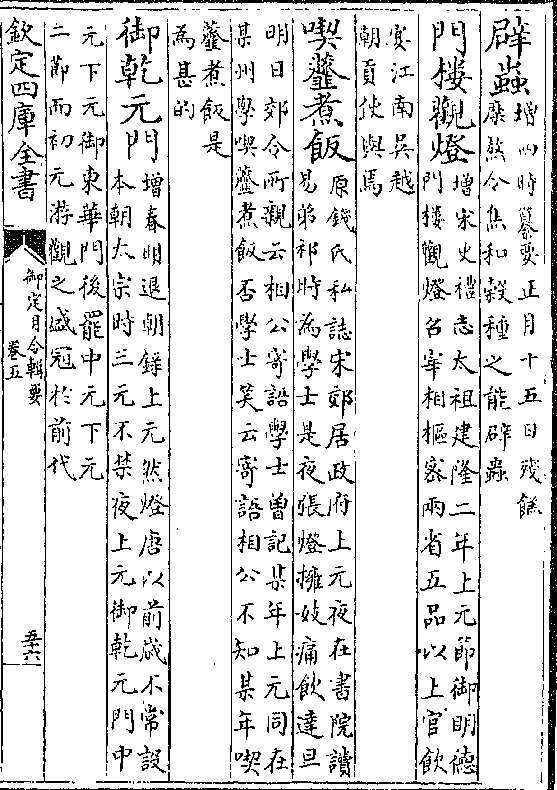 辟蟲
增四時纂要正月十五日殘餻
糜熬令焦和榖種之能辟蟲
門樓觀燈
增宋史禮志太祖建隆二年上元節御明德
門樓觀燈召宰相樞密兩省五品以上官飲
宴江南吳越
朝貢使與焉
喫虀煮飯
原錢氏私誌宋郊居政府上元夜在書院讀
易弟祁時為學士是夜張燈擁妓痛飲達旦
明日郊令所觀云相公寄語學士曽記某年上元同在
某州學喫虀煮飯否學士笑云寄語相公不知某年喫
虀煮飯是
為甚的
御乾元門
增春明退朝錄上元然燈唐以前歳不常設
本朝太宗時三元不禁夜上元御乾元門中
元下元御東華門後罷中元下元
二節而初元游觀之盛冠於前代
欽定四庫全書
御定月令輯要
卷五
五十六